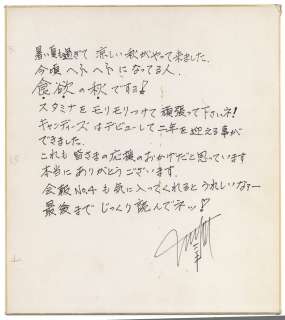 暑い夏も過ぎて 涼しい秋がやって来ました。
今頃 ヘトヘトになってる人、
食欲の秋ですョ!
スタミナをモリモリつけて 頑張って下さいネ!
キャンディーズはデビューして二年を迎える事が
できました。
これも皆さまの応援のおかげだと思っています
本当に ありがとうございます。
会報No.4も気に入ってくれるとうれしいなァー
最後まで じっくり読んでネッ!